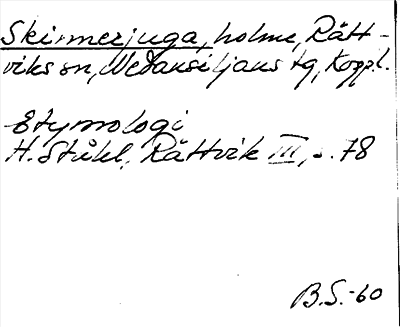 Skinnerjuga, holme, Rätt-
viks sn, Nedansiljans tg, Koppl.
Etymologi
H. Ståhl, Rättvik III, s. 78
B.S.-60